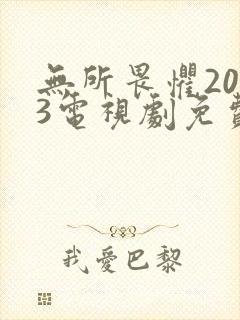 無所畏懼20
3電視劇免
我愛巴黎